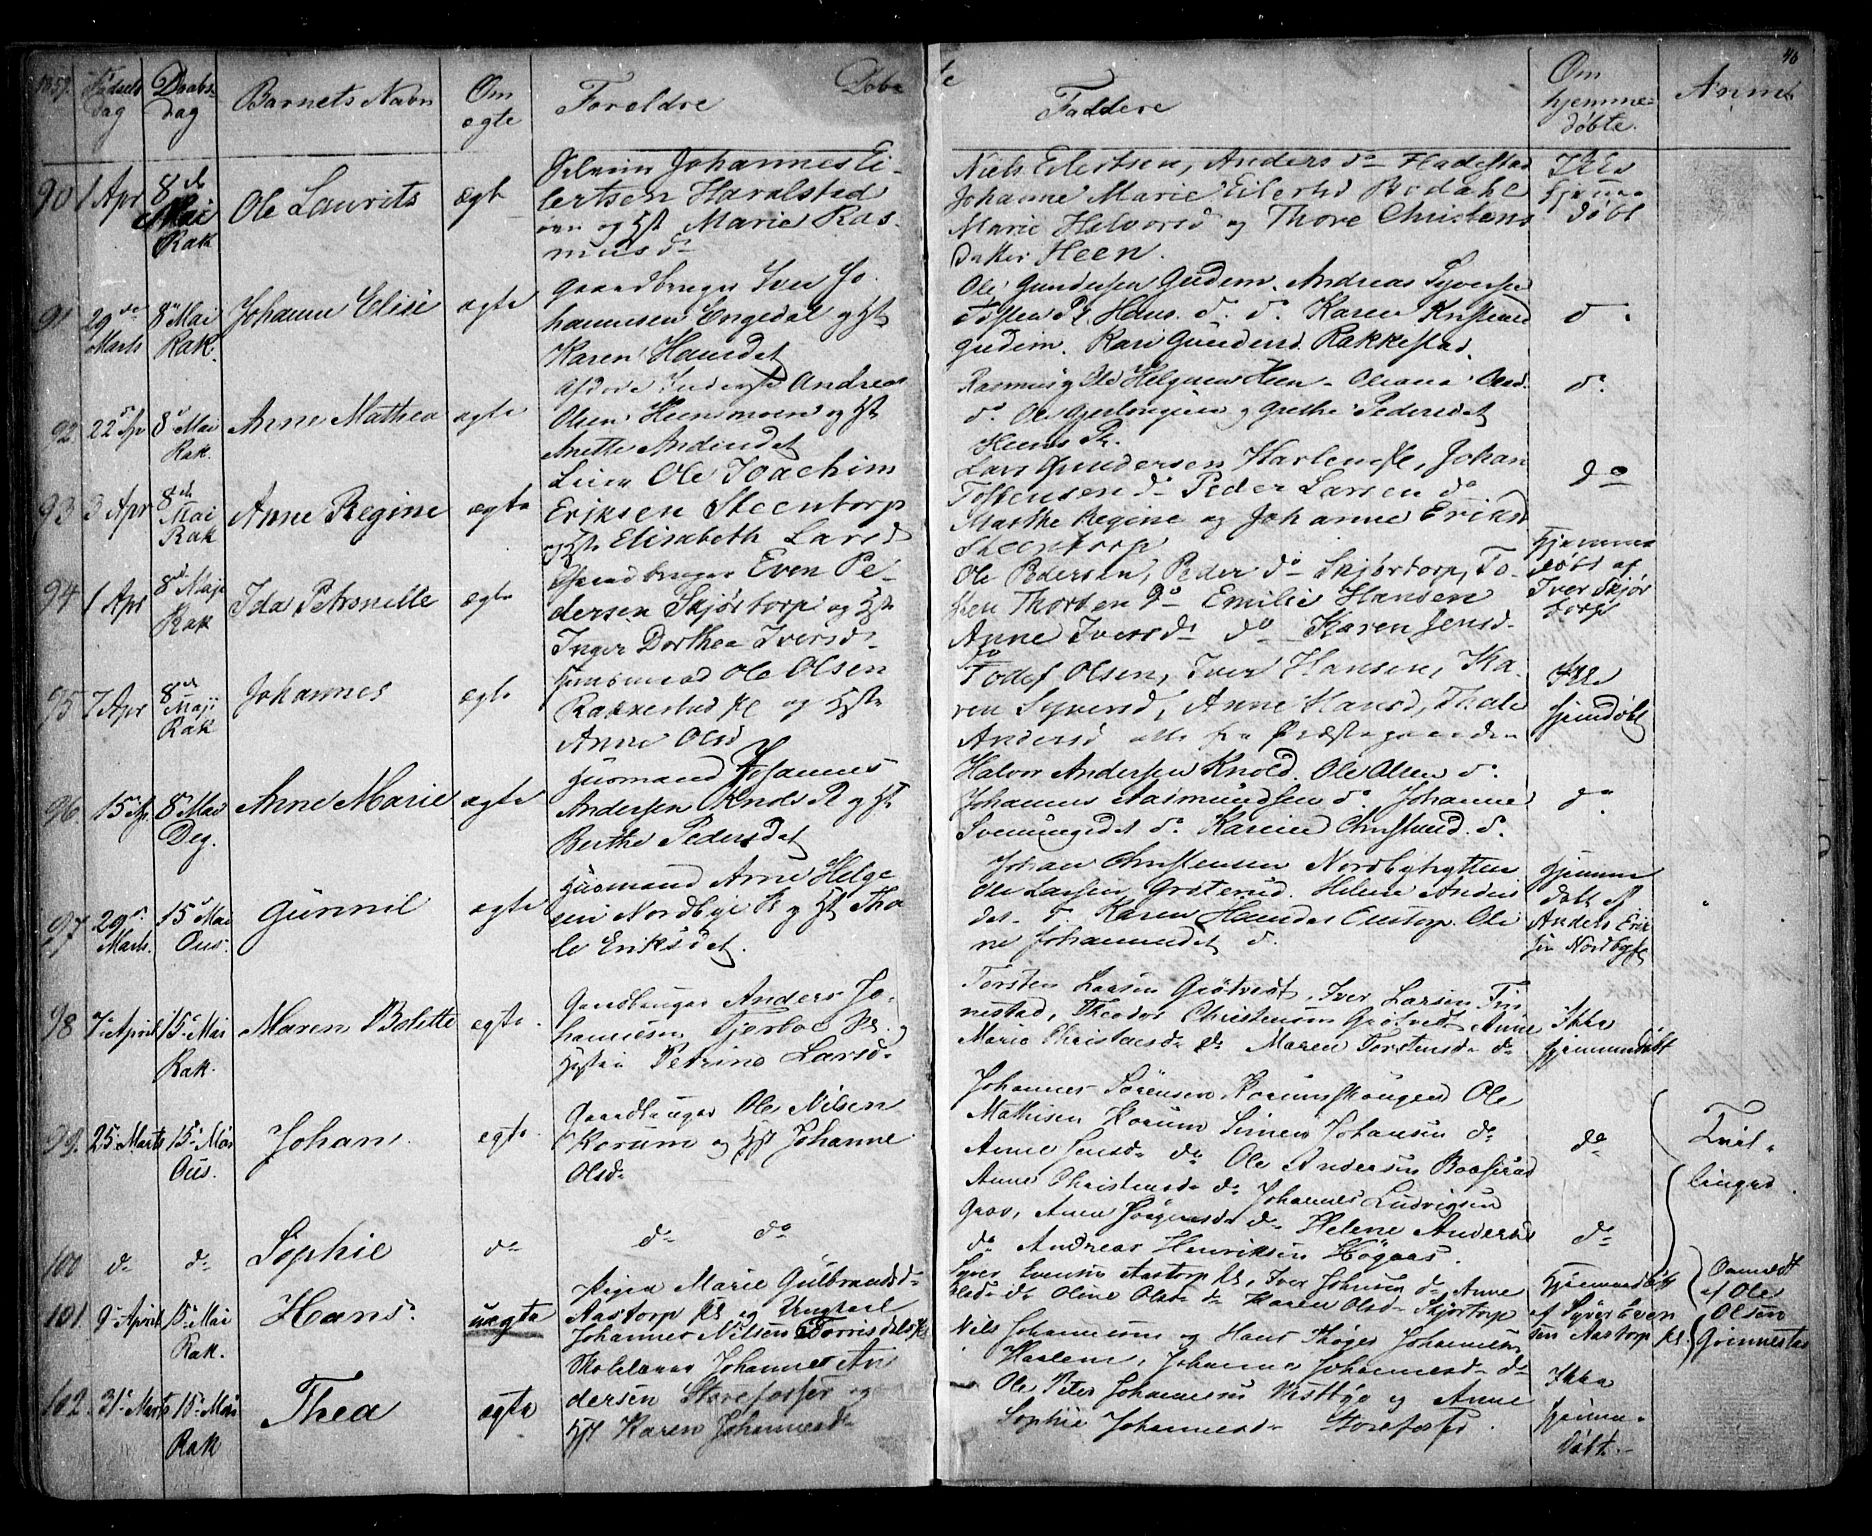 1859. Fødsels Daabs- Barnets Navn Om Forældre Døbte Faddere Om Anmk
dag dag ægte hjemme-
døbte.
46
90 1 Apr 8de Mai Rak Ole Laurits ægte
Johannes Ei-
lertsen Haralstad
og Hst Marie Ras-
musd
Niels Eilertsen, Anders do Fladestad
Johanne Marie Eilertsd Bodahl
Marie Halvorsd og Thore Christens
Heen.
Ikke
hjemme
døbt
91 29de Marts 8 Mai Rak. Johanne Elise ægte
Gaardbruger Iver Jo-
hannesen Engedal og Hst
Karen Hansdat
Ole Gundersen Gudim. Andreas Syversen
Hans do do Karen
Gudim. Kari Rakkestad.
do
92 22 Apr 8 Mai Rak. Anne Mathea ægte
Andreas
Olsen Heensmoen og Hst
Anette Andersdat
Rasmus og Ole Helgesen Heen - Oleana Olsd.
do Ole og Grethe Pedersdat
Heens Pl.
do
93 3 Apr 8de Mai Rak Anne Regine ægte
Ole Joachim
Eriksen Steentorp
og Hst Elisabeth Larsd
Lars Gundersen Harlem Pl, Johan
Tostensen do Peder Larsen do
Marthe Regine og Johanne Eriksd
Steentorp
do
94 1 Apr 8d Maji Rak Ida Petronelle ægte
Gaardbruger Even Pe-
dersen Skjørtorp og Hst
Inger Dorthea Iversd
Ole Pedersen, Peder do Skjørtorp, To-
sten Thorsen do Emilie Hansen
Anne Iversd do Karen Jensd
do
Hjemme
døbt af
Iver Skjør
torp
95 7 Apr 8d Maji Rak Johannes ægte
Huusmand Ole Olsen
Rakkestad Pl og Hst
Anne Olsd
Olsen, Iver Hansen, Ka-
ren Syversd, Anne Hansd, Thale
Andersd alle fra Præstegaarden
Ikke
hjemdøbt
96 15 Ap 8 Mai Deg. Anne Marie ægte
Huusmand Johannes
Andersen Knold Pl og Hst
Berthe Pedersdat
Halvor Andersen Knold. Ole Olsen do
Johannes Aasmundsen do. Johanne
do. Karine do.
do
97 29 Marts. 15 Mai Ous. Gunnil ægte
Huusmand Arne Helge
sen Nordbye Pl og Hst Tha
le Eriksdat.
Johan Christensen Nordbyhytten
Ole Larsen Grøterud. Helene Anders
dat do. Karen Hansdat Oustorp. Ole
ne Johannesdat do.
Hjemme
døbt af
Anders Erik
sen Nordbye
98 7 April 15 Mai Rak. Maren Bolette ægte.
Gaardbruger Anders Jo-
hannesen Tjerbo Pl. og
Hustru Petrine Larsd
Torsten Larsen Grøtvedt, Iver Larsen Fin
nestad, Theodor Christensen Grøtvedt, Anne
Marie Christensd do Maren Torstensd do
Ikke
hjemmedøbt
99. 25 Marts 15 Mai Ous. Johan. ægte.
Gaardbruger Ole Nilsen
Korum og Hst Johanne
Olsd
Johannes Sørensen Korumskougen Ole
Mathisen Korum Simen Johansen do
Anne Jensd do Ole Andersen Baaserud
Anne Christensd do Johannes Ludvigsen
Grav, Anne Jørgensd do Helene Andersd
do Andreas Henriksen Høgaas.
do
Tvil-
linger.
100 do do Sophie do do do do
101 9 April 15 Mai Rak. Hans. uægte
Pigen Marie Gulbrandsd
Aastorp Pl og Ungkarl
Johannes Nilsen Torrisdals Pl
Syver Evensen Aastorp Pl, Iver Johnsen do Anne
Olsd do Oline Olsd do Karen Olsd Skjørtorp
Hjemmedøbt
af Syver Even
sen Aastorp Pl.
Anmeldt
af Ole
Olsen
Grimmestad
102. 31 Marts 15 Mai Rak Thea ægte
Skolelærer Johannes An
dersen Storefosser og
Hst Karen Johannesd
Nils Johannesen og Hans Johannesen
Haslem, Johanne Johannesd do
Ole Peter Johannesen og Anne
Sophie Johannesd Storefosser.
Ikke
hjemme-
døbt.